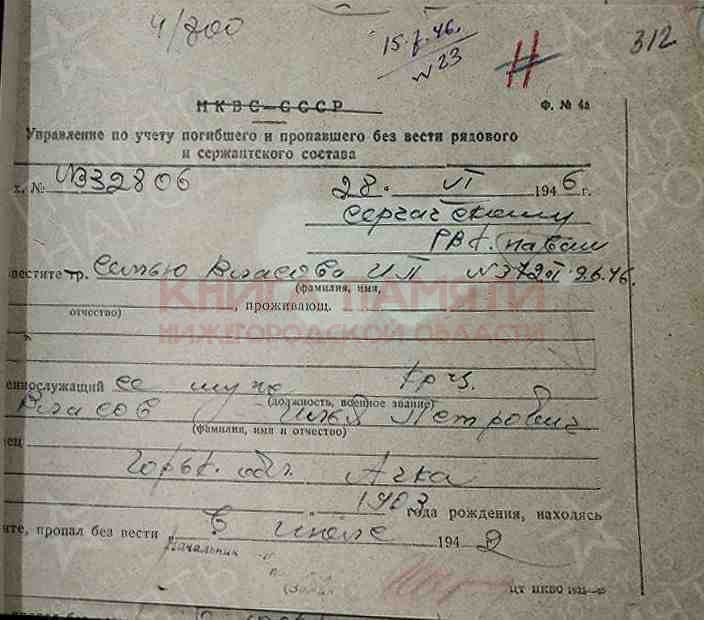 4/700
15.7.46.
N 23
Н
312
НКВС СССР
Ф. № 4а
Управление по учету погибшего и пропавшего без вести рядового
и сержантского состава
х. № N332806 28. VI 1946 г.
Сергачскому
РВК.
вестите гр. Семью Власова И П N 372 9.6.46.
(фамилия, имя,
отчество) , проживающ.
КНИГА ПАМЯТИ
НИЖЕГОРОДСКОЙ ОБЛАСТИ
еннослужащий ее муж кр-ц.
(должность, военное звание)
Власов Илья Петрович
(фамилия, имя и отчество)
ец
Горьк. обл. Ачка
1903 года рождения, находясь
те, пропал без вести в июле 1942
Начальник
ЦТ НКВО